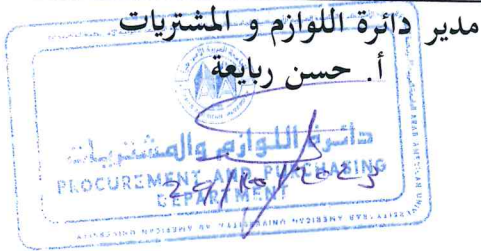 مدير دائرة اللوازم و المشتريات
أ. حسن ربايعة
دائرة اللوازم والمشتريات
PLOCUREMENT AND PURCHASING
DEPARTMENT